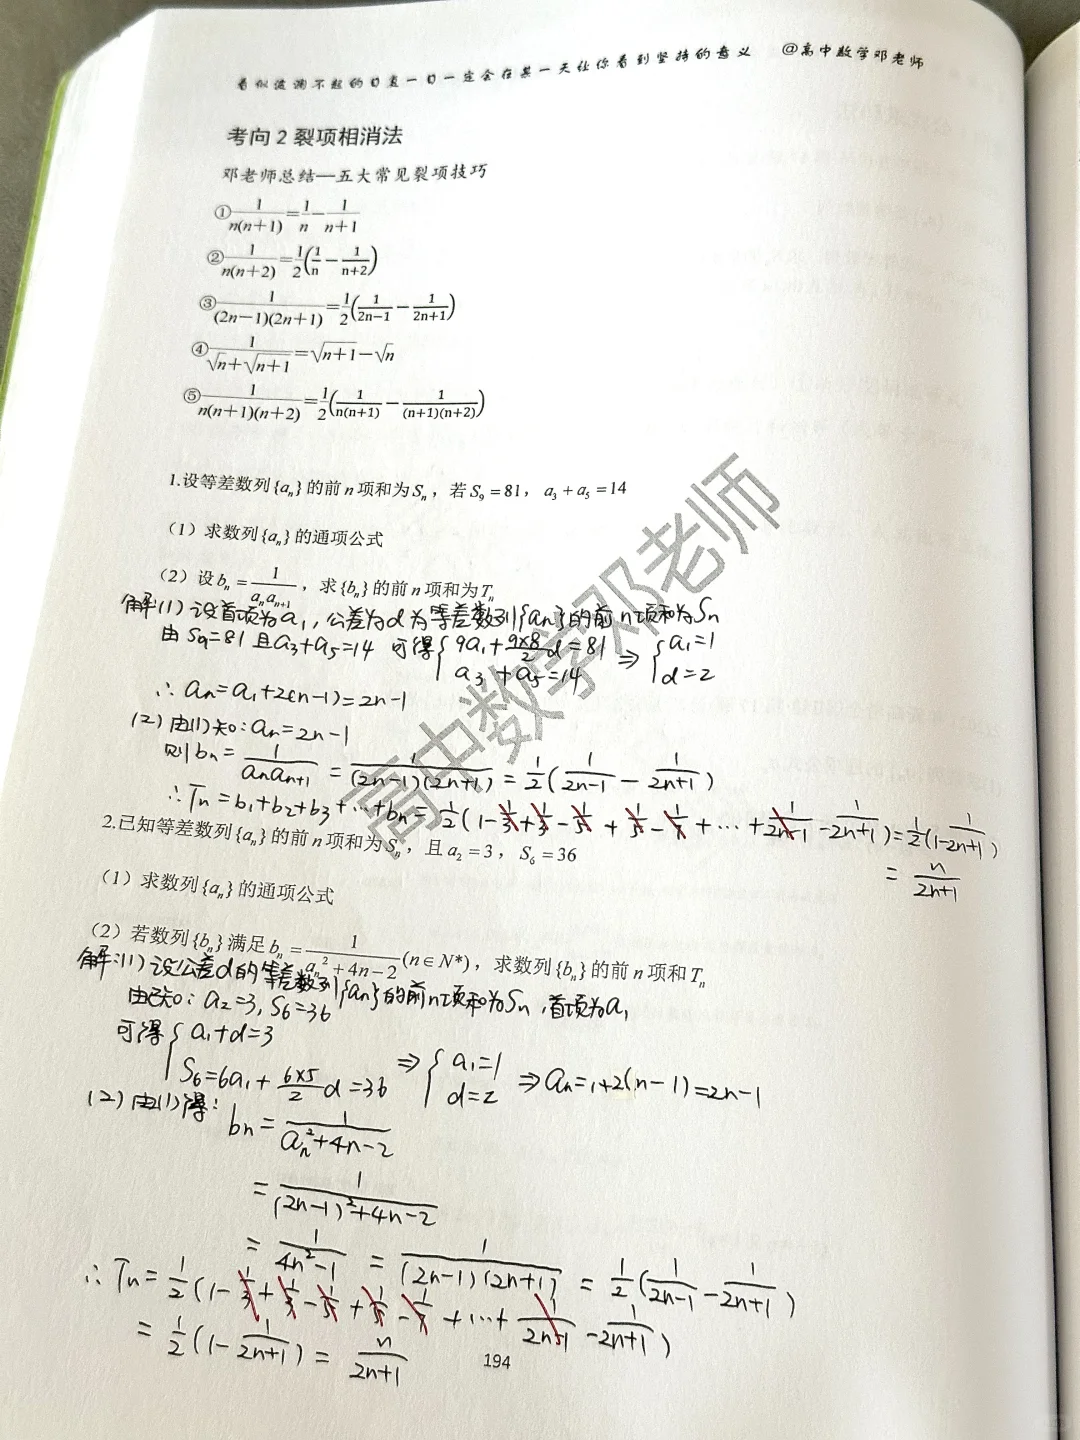 看似波澜不起的日复一日一定会在某一天让你看到坚持的意义 @高中数学邓老师
考向 2 裂项相消法
邓老师总结—五大常见裂项技巧
① 1/(n(n+1)) = 1/n - 1/(n+1)
② 1/(n(n+2)) = 1/2(1/n - 1/(n+2))
③ 1/((2n-1)(2n+1)) = 1/2(1/(2n-1) - 1/(2n+1))
④ 1/(√n+√(n+1)) = √(n+1) - √n
⑤ 1/(n(n+1)(n+2)) = 1/2(1/(n(n+1)) - 1/((n+1)(n+2)))
1.设等差数列{aₙ}的前n项和为Sₙ，若S₉=81，a₃+a₅=14
（1）求数列{aₙ}的通项公式
（2）设bₙ = 1/(aₙaₙ₊₁)，求{bₙ}的前n项和为Tₙ
解:(1) 设首项为a₁, 公差为d为等差数列{aₙ}的前n项和为Sₙ
由 S₉=81 且 a₃+a₅=14 可得 { 9a₁+(9×8)/2 d=81 ⇒ { a₁=1
a₃+a₅=14 d=2
∴ aₙ=a₁+2(n-1)=2n-1
(2) 由(1)知: aₙ=2n-1
则 bₙ = 1/(aₙaₙ₊₁) = 1/((2n-1)(2n+1)) = 1/2(1/(2n-1) - 1/(2n+1))
∴ Tₙ=b₁+b₂+b₃+…+bₙ = 1/2(1-1/3+1/3-1/5+1/5-1/7+…+1/(2n-1)-1/(2n+1)) = 1/2(1-1/(2n+1))
= n/(2n+1)
2.已知等差数列{aₙ}的前n项和为Sₙ，且a₂=3，S₆=36
（1）求数列{aₙ}的通项公式
（2）若数列{bₙ}满足bₙ = 1/(aₙ²+4n-2) (n∈N*)，求数列{bₙ}的前n项和Tₙ
解:(1) 设公差d的等差数列{aₙ}的前n项和为Sₙ, 首项为a₁
由已知: a₂=3, S₆=36
可得 { a₁+d=3
S₆=6a₁+(6×5)/2 d=36 ⇒ { a₁=1 d=2 ⇒ aₙ=1+2(n-1)=2n-1
(2) 由(1)得: bₙ = 1/(aₙ²+4n-2)
= 1/((2n-1)²+4n-2)
= 1/(4n²-1) = 1/((2n-1)(2n+1)) = 1/2(1/(2n-1) - 1/(2n+1))
∴ Tₙ = 1/2(1-1/3+1/3-1/5+1/5-1/7+…+1/(2n-1)-1/(2n+1))
= 1/2(1-1/(2n+1)) = n/(2n+1)
194
高中数学邓老师